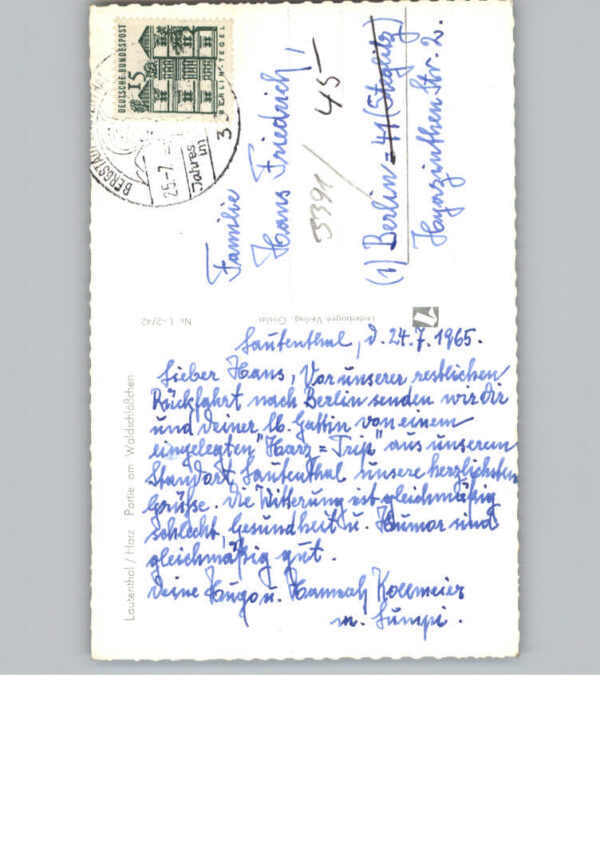 DEUTSCHE BUNDESPOST
15
BERLIN-TEGEL
BERGSTADT
25.-7.
3
Familie
Hans Friedrich!
5391/45-
(1) Berlin = 41 (Steglitz)
Hyazinthen Str. 2.
Lederbogen-Verlag, Goslar
Nr. L-2/42
Lautenthal / Harz Partie am Waldschlößchen
Lautenthal, d. 24.7.1965.
Lieber Hans, Vor unserer restlichen
Rückfahrt nach Berlin senden wir Dir
und Deiner lb. Gattin von einem
eingelegten "Harz = Trip" aus unserem
Standort Lautenthal unsere herzlichsten
Grüsse. Die Witterung ist gleichmäßig
schlecht, Gesundheit u. Humor sind
gleichmäßig gut.
Deine Hugo u. Hannah Kollmeier
m. Lumpi.